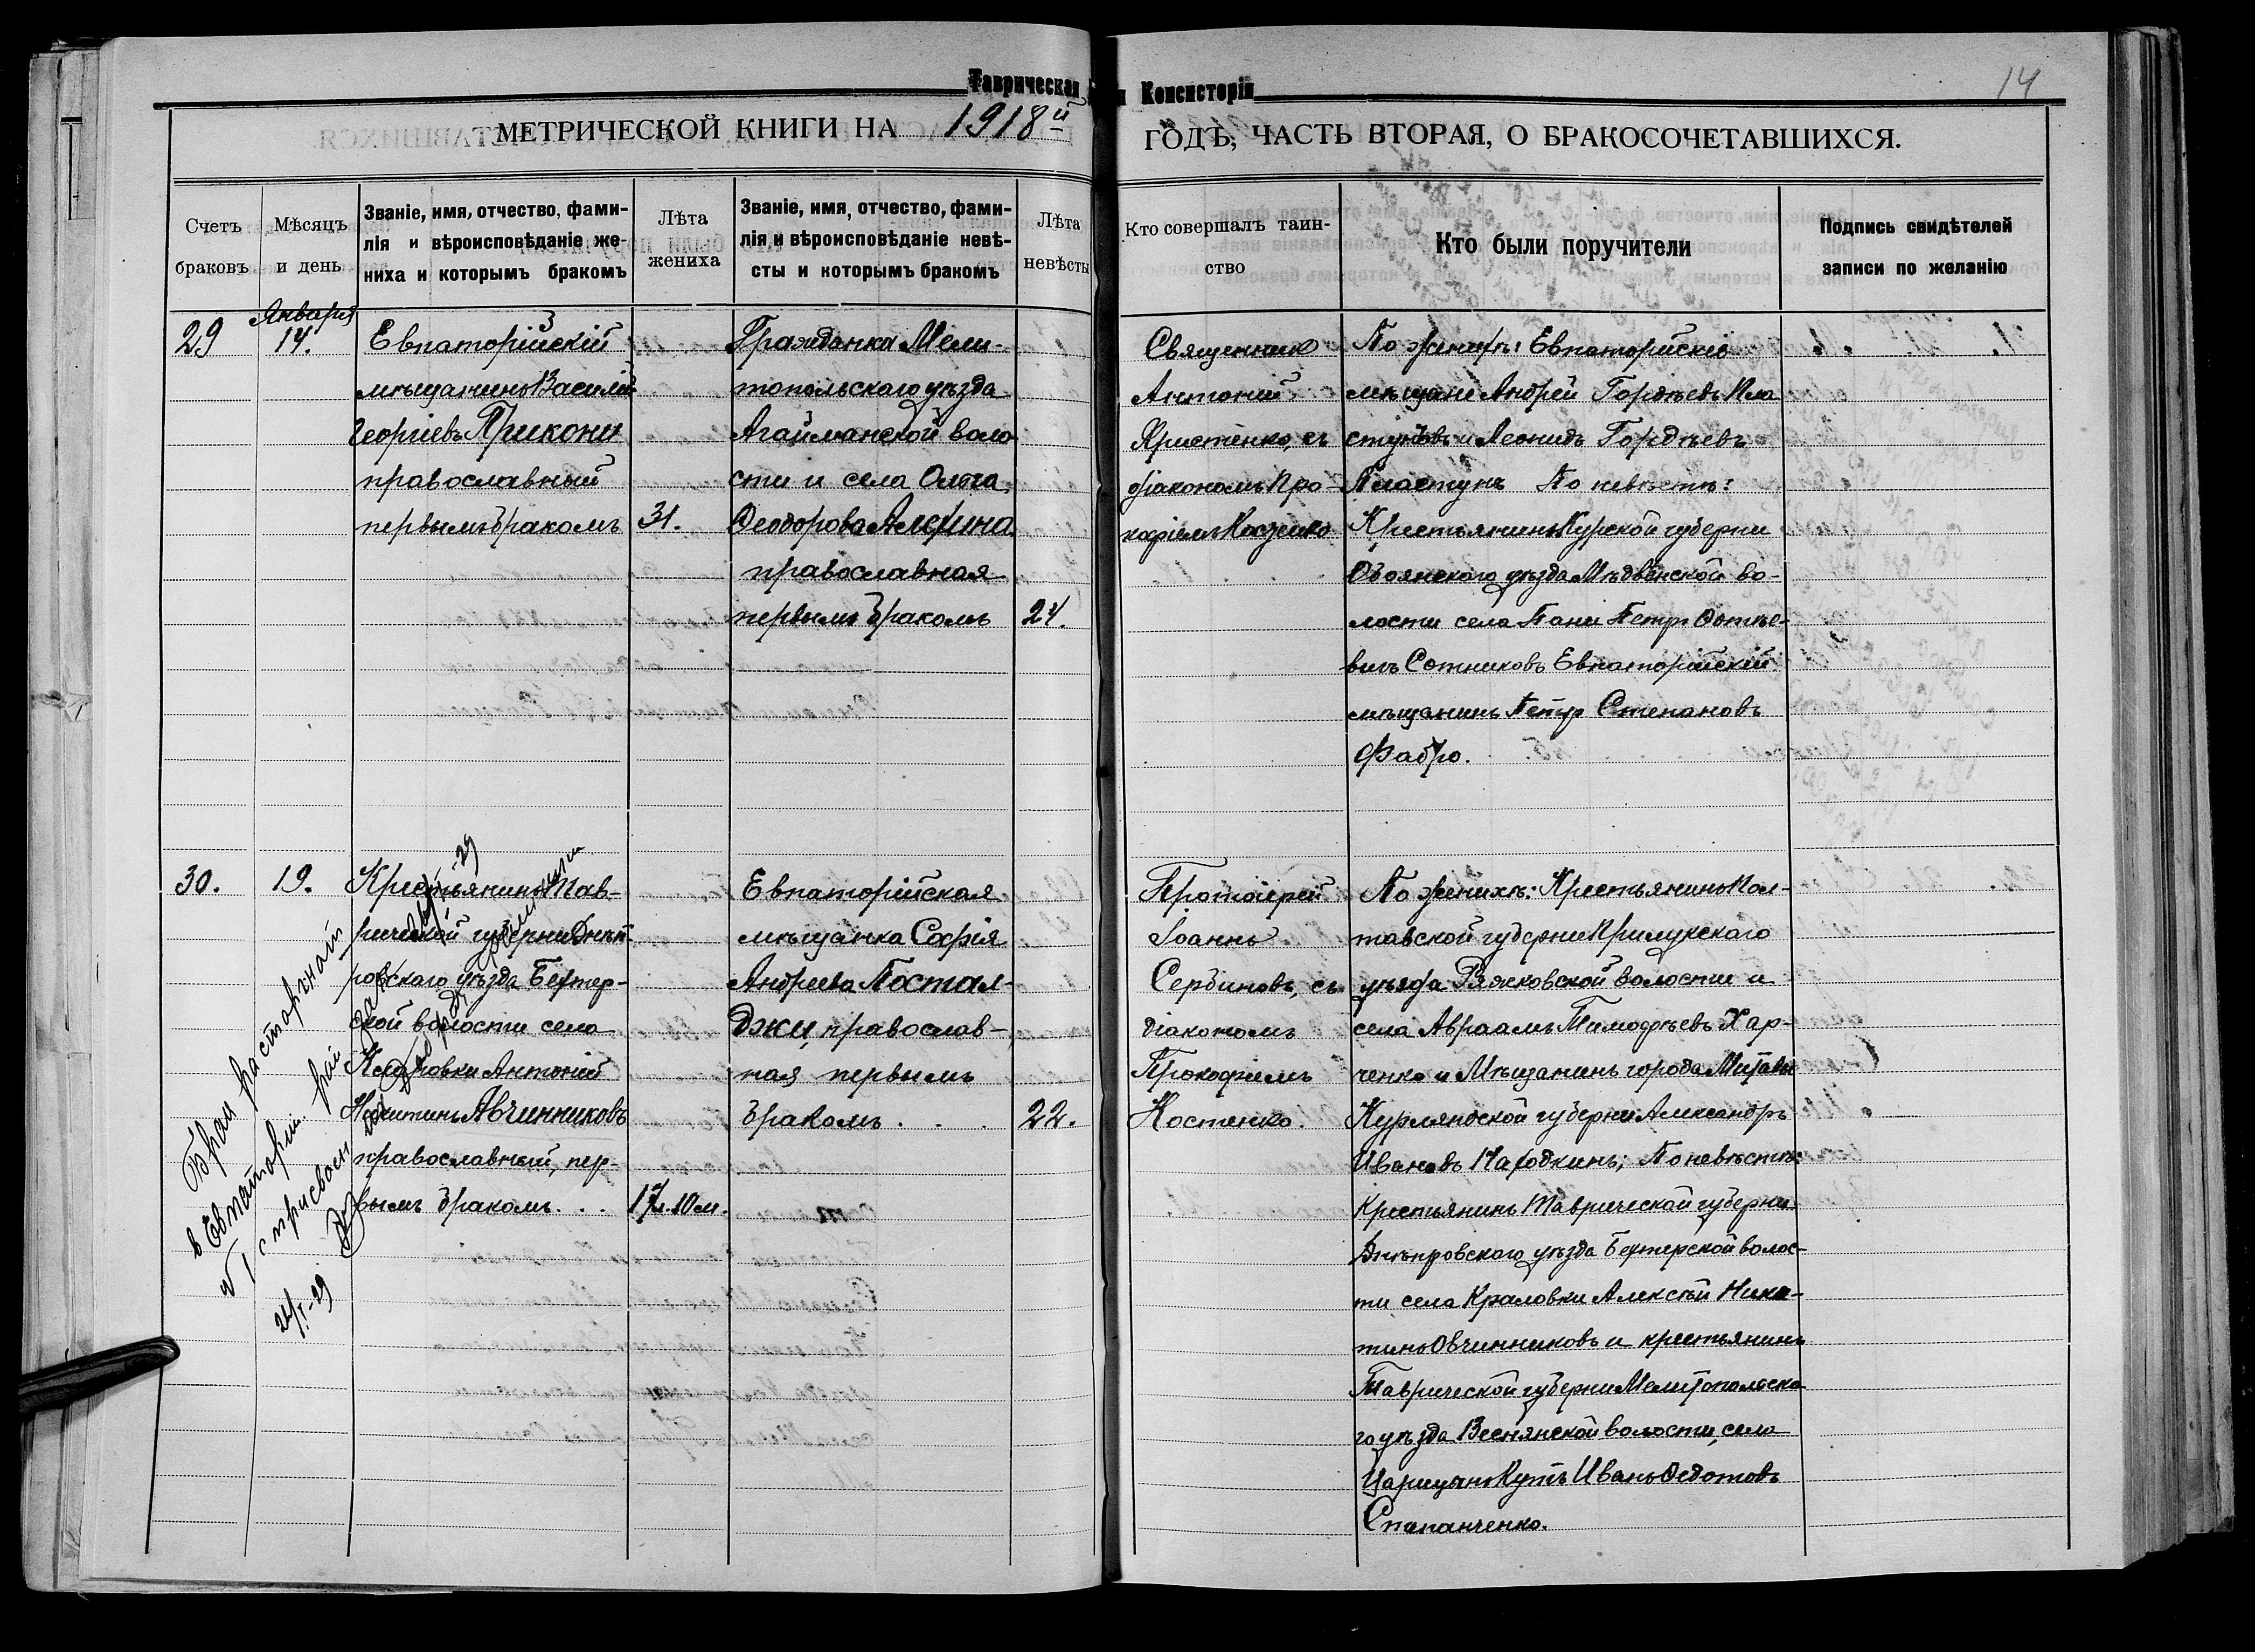 Таврическая
Консисторіи
14
МЕТРИЧЕСКОЙ КНИГИ НА 1918й
ГОДЪ; ЧАСТЬ ВТОРАЯ, О БРАКОСОЧЕТАВШИХСЯ.
Счетъ браковъ
Мѣсяцъ и день
Званіе, имя, отчество, фами-
лія и вѣроисповѣданіе же-
ниха и которымъ бракомъ
Лѣта
жениха
Званіе, имя, отчество, фами-
лія и вѣроисповѣданіе невѣ-
сты и которымъ бракомъ
Лѣта
невѣсты
Кто совершалъ таин-
ство
Кто были поручители
Подпись свидѣтелей
записи по желанію
29
Января
14.
Евпаторійскій
мѣщанинъ Василій
Георгіевъ Прикони
православный
первымъ бракомъ
31.
Гражданка Мели-
топольскаго уѣзда
Агайманской воло
сти и села Ольга
Ѳеодорова Алехина
православная
первымъ бракомъ
24.
Священникъ
Антоній
Христенко, съ
діакономъ Про-
кофіемъ Костенко
По женихѣ: Евпаторійскіе
мѣщане Андрей Гордѣевъ Пла
стуновъ и Леонидъ Гордѣевъ
Пластунъ По невѣстѣ:
Крестьянинъ Курской губерни
Обоянскаго уѣзда Мѣдвенской во-
лости села Пани Петръ Фотѣе-
вичъ Сотниковъ Евпаторійскій
мѣщанинъ Петръ Степановъ
Фабро.
30.
19.
Крестьянинъ Тав-
рической губерни Днѣп-
ровскаго уѣзда Бехтер-
ской волости села
Антоній
Никитинъ Авчинниковъ
православный, пер-
вымъ бракомъ...
17л. 10 м.
Евпаторійская
мѣщанка Софія
Андреева Постал-
джи, православ-
ная первымъ
бракомъ...
22.
Протоіерей
Іоаннъ
Сербиновъ, съ
діакономъ
Прокофіемъ
Костенко.
По женихѣ: Крестьянинъ Пол-
тавской губерни Прилукскаго
уѣзда Ряжковской волости и
села Авраамъ Тимофѣевъ Хар-
ченко и Мѣщанинъ города Митавы
Курляндской губерни Александръ
Ивановъ Находкинъ; По невѣстѣ:
Крестьянинъ Таврической губерни
Днѣпровскаго уѣзда Бехтерской волос-
ти села Краловки Алексѣй Ники-
тинъ Овчинниковъ и крестьянинъ
Таврической губерни Мелитопольска
го уѣзда Веснянской волости, села
Царицынъ Кутъ Иванъ Ѳедотовъ
Степанченко.
Брак расторгнат
в Евпатории
с присвоен
24/I-29